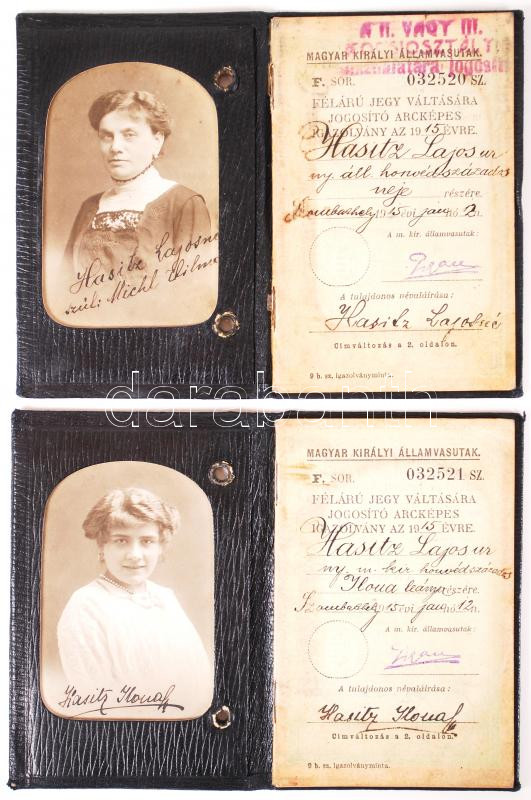 A II. VAGY III.
KOCSIOSZTÁLY
használatára jogosít
MAGYAR KIRÁLYI ÁLLAMVASUTAK.
F. SOR. 032520 SZ.
FÉLÁRÚ JEGY VÁLTÁSÁRA
JOGOSITÓ ARCKÉPES
IGAZOLVÁNY AZ 1915 ÉVRE.
Hasitz Lajos ur
ny. áll honvédszázados
neje részére.
Szombathely 1915 évi jan hó 2 n.
A m. kir. államvasutak:
A tulajdonos névaláírása:
Hasitz Lajosné
Címváltozás a 2. oldalon.
9 b. sz. igazolványminta.
Hasitz Lajosné
szül: Michl Vilma
darabanth
MAGYAR KIRÁLYI ÁLLAMVASUTAK.
F. SOR. 032521 SZ.
FÉLÁRÚ JEGY VÁLTÁSÁRA
JOGOSITÓ ARCKÉPES
IGAZOLVÁNY AZ 1915 ÉVRE.
Hasitz Lajos ur
ny. m. kir honvédszázados
Ilona leánya részére.
Szombathely 1915 évi jan hó 12 n.
A m. kir. államvasutak:
A tulajdonos névaláírása:
Hasitz Ilona
Címváltozás a 2. oldalon.
9 b. sz. igazolványminta.
Hasitz Ilona